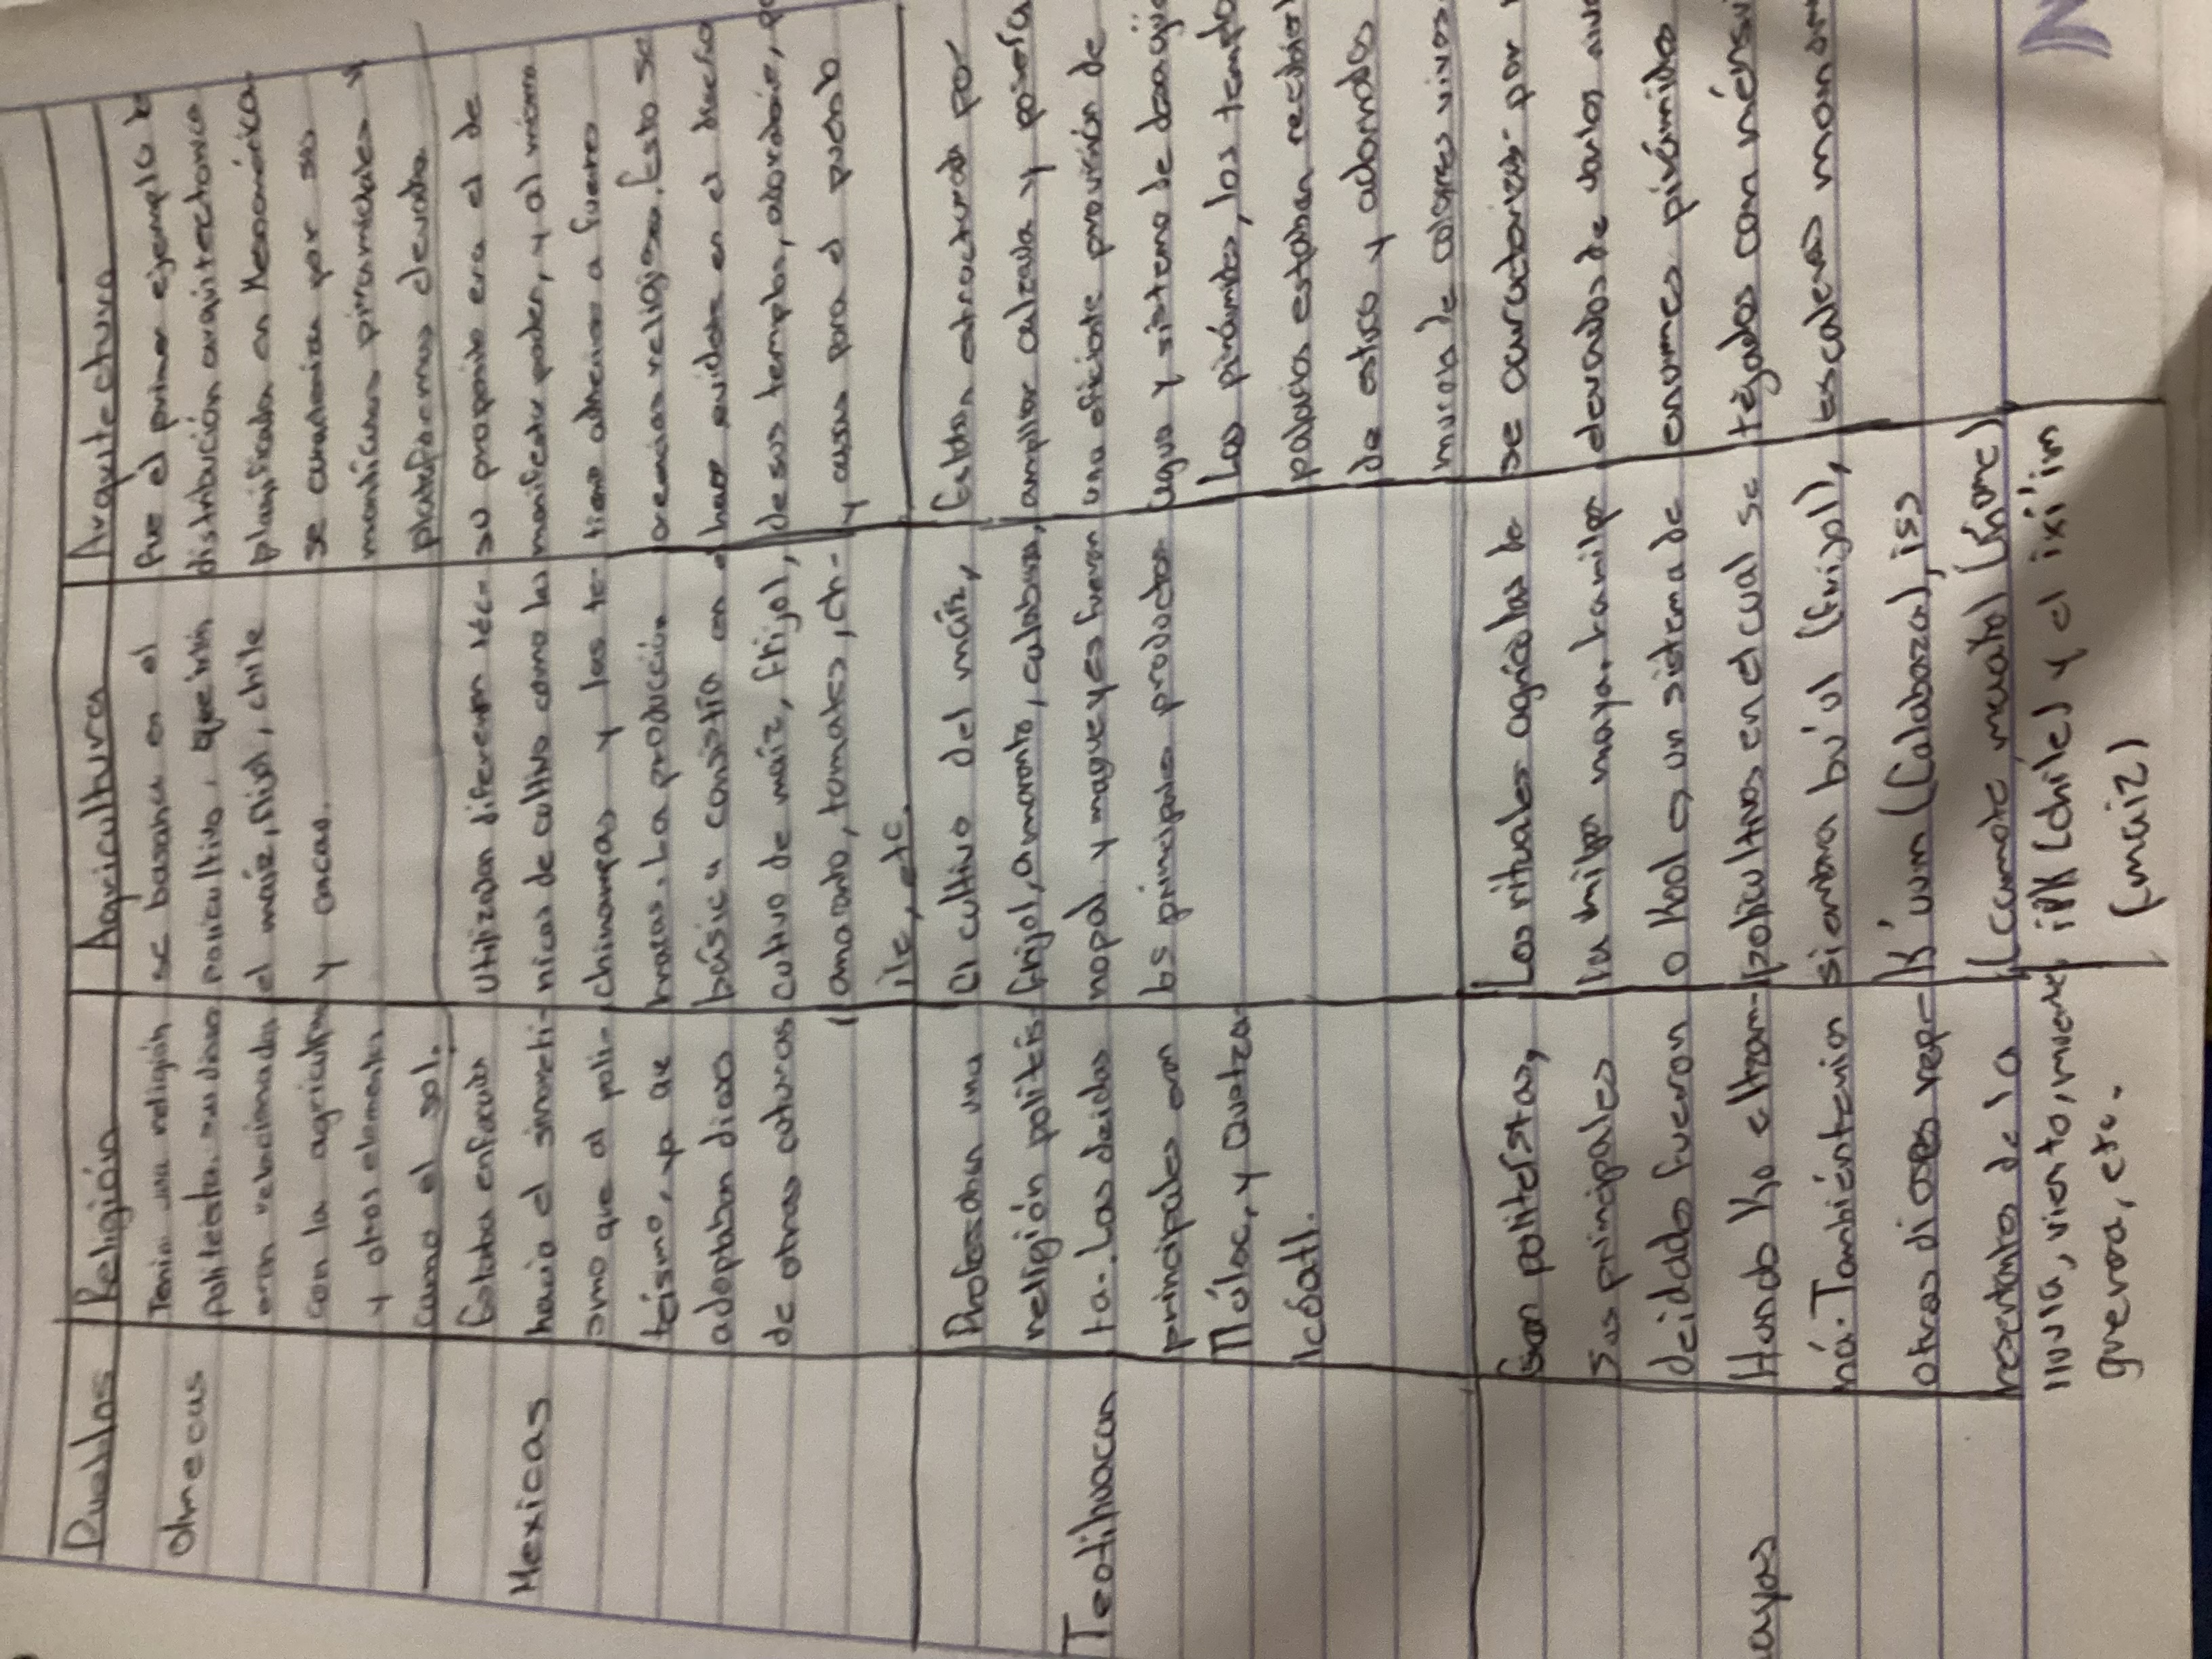 Pueblos Religión Agricultura Arquitectura
Olmecas
Tenia una religión
politeista. sus dioses
eran relacionados
con la agricultura
y otros elementos
como el sol.
se basaba en el
policultivo, que
el maíz, frijol, chile
y cacao.
fue el primer ejemplo
distribución arquitectonica
planificada en Mesoamérica
se caracteriza por su
piramidales y
plataformas elevadas
Mexicas
Estaba enfocada
hacia el sincreti-
smo que al poli-
teísmo, ya que
adoptaban dioses
de otras culturas
Utilizaban diferentes téc-
nicas de cultivo como las
chinampas y las te-
rrazas. La producción
básica consistía en
cultivo de maíz, frijol,
amaranto, tomates, ch-
ile, etc.
su proposito era el de
manifestar poder, y al mismo
tiempo adherirse a fuertes
creencias religiosas. Esto se
hace evidente en el diseño
de sus templos,
y casas para el pueblo
Teotihuacan
Profesaban una
religión politeís-
ta. Las deidades
principales eran
Tláloc, y Quetza-
lcóatl.
El cultivo del maíz,
frijol, amaranto, calabaza,
nopal y magueyes fueron
los principales productos
Estaban estructurada por
amplias calzadas y poseía
una eficiente provisión de
agua y sistema de
Las pirámides, los
palacios estaban
de estuco y adornados
murales de colores vivos.
ayas
Eran politeístas,
Sus principales
deidades fueron
Hunab Ku e Itzam-
ná. También tenían
otros dioses rep-
resentantes de la
lluvia, viento, muerte
guerra, etc.
Los rituales agrícolas de
la milpa maya,
o Kool es un sistema de
policultivos en el cual se
siembra bu'ul (frijol),
k'uum (Calabaza), iss
(camote, macalo) (ñame)
iik (chile) y el ixi'im
(maíz)
se por
elevados de varios
enormes
con
escaleras